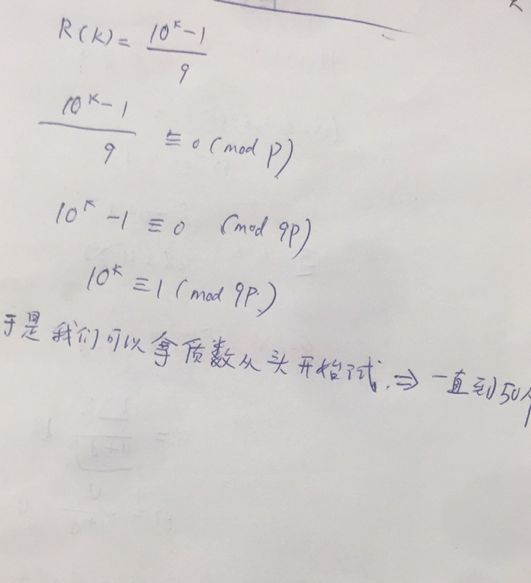 R(k) = (10^k - 1) / 9
(10^k - 1) / 9 ≡ 0 (mod p)
10^k - 1 ≡ 0 (mod 9p)
10^k ≡ 1 (mod 9p.)
于是我们可以拿质数从头开始试. ⇒ 一直到50个